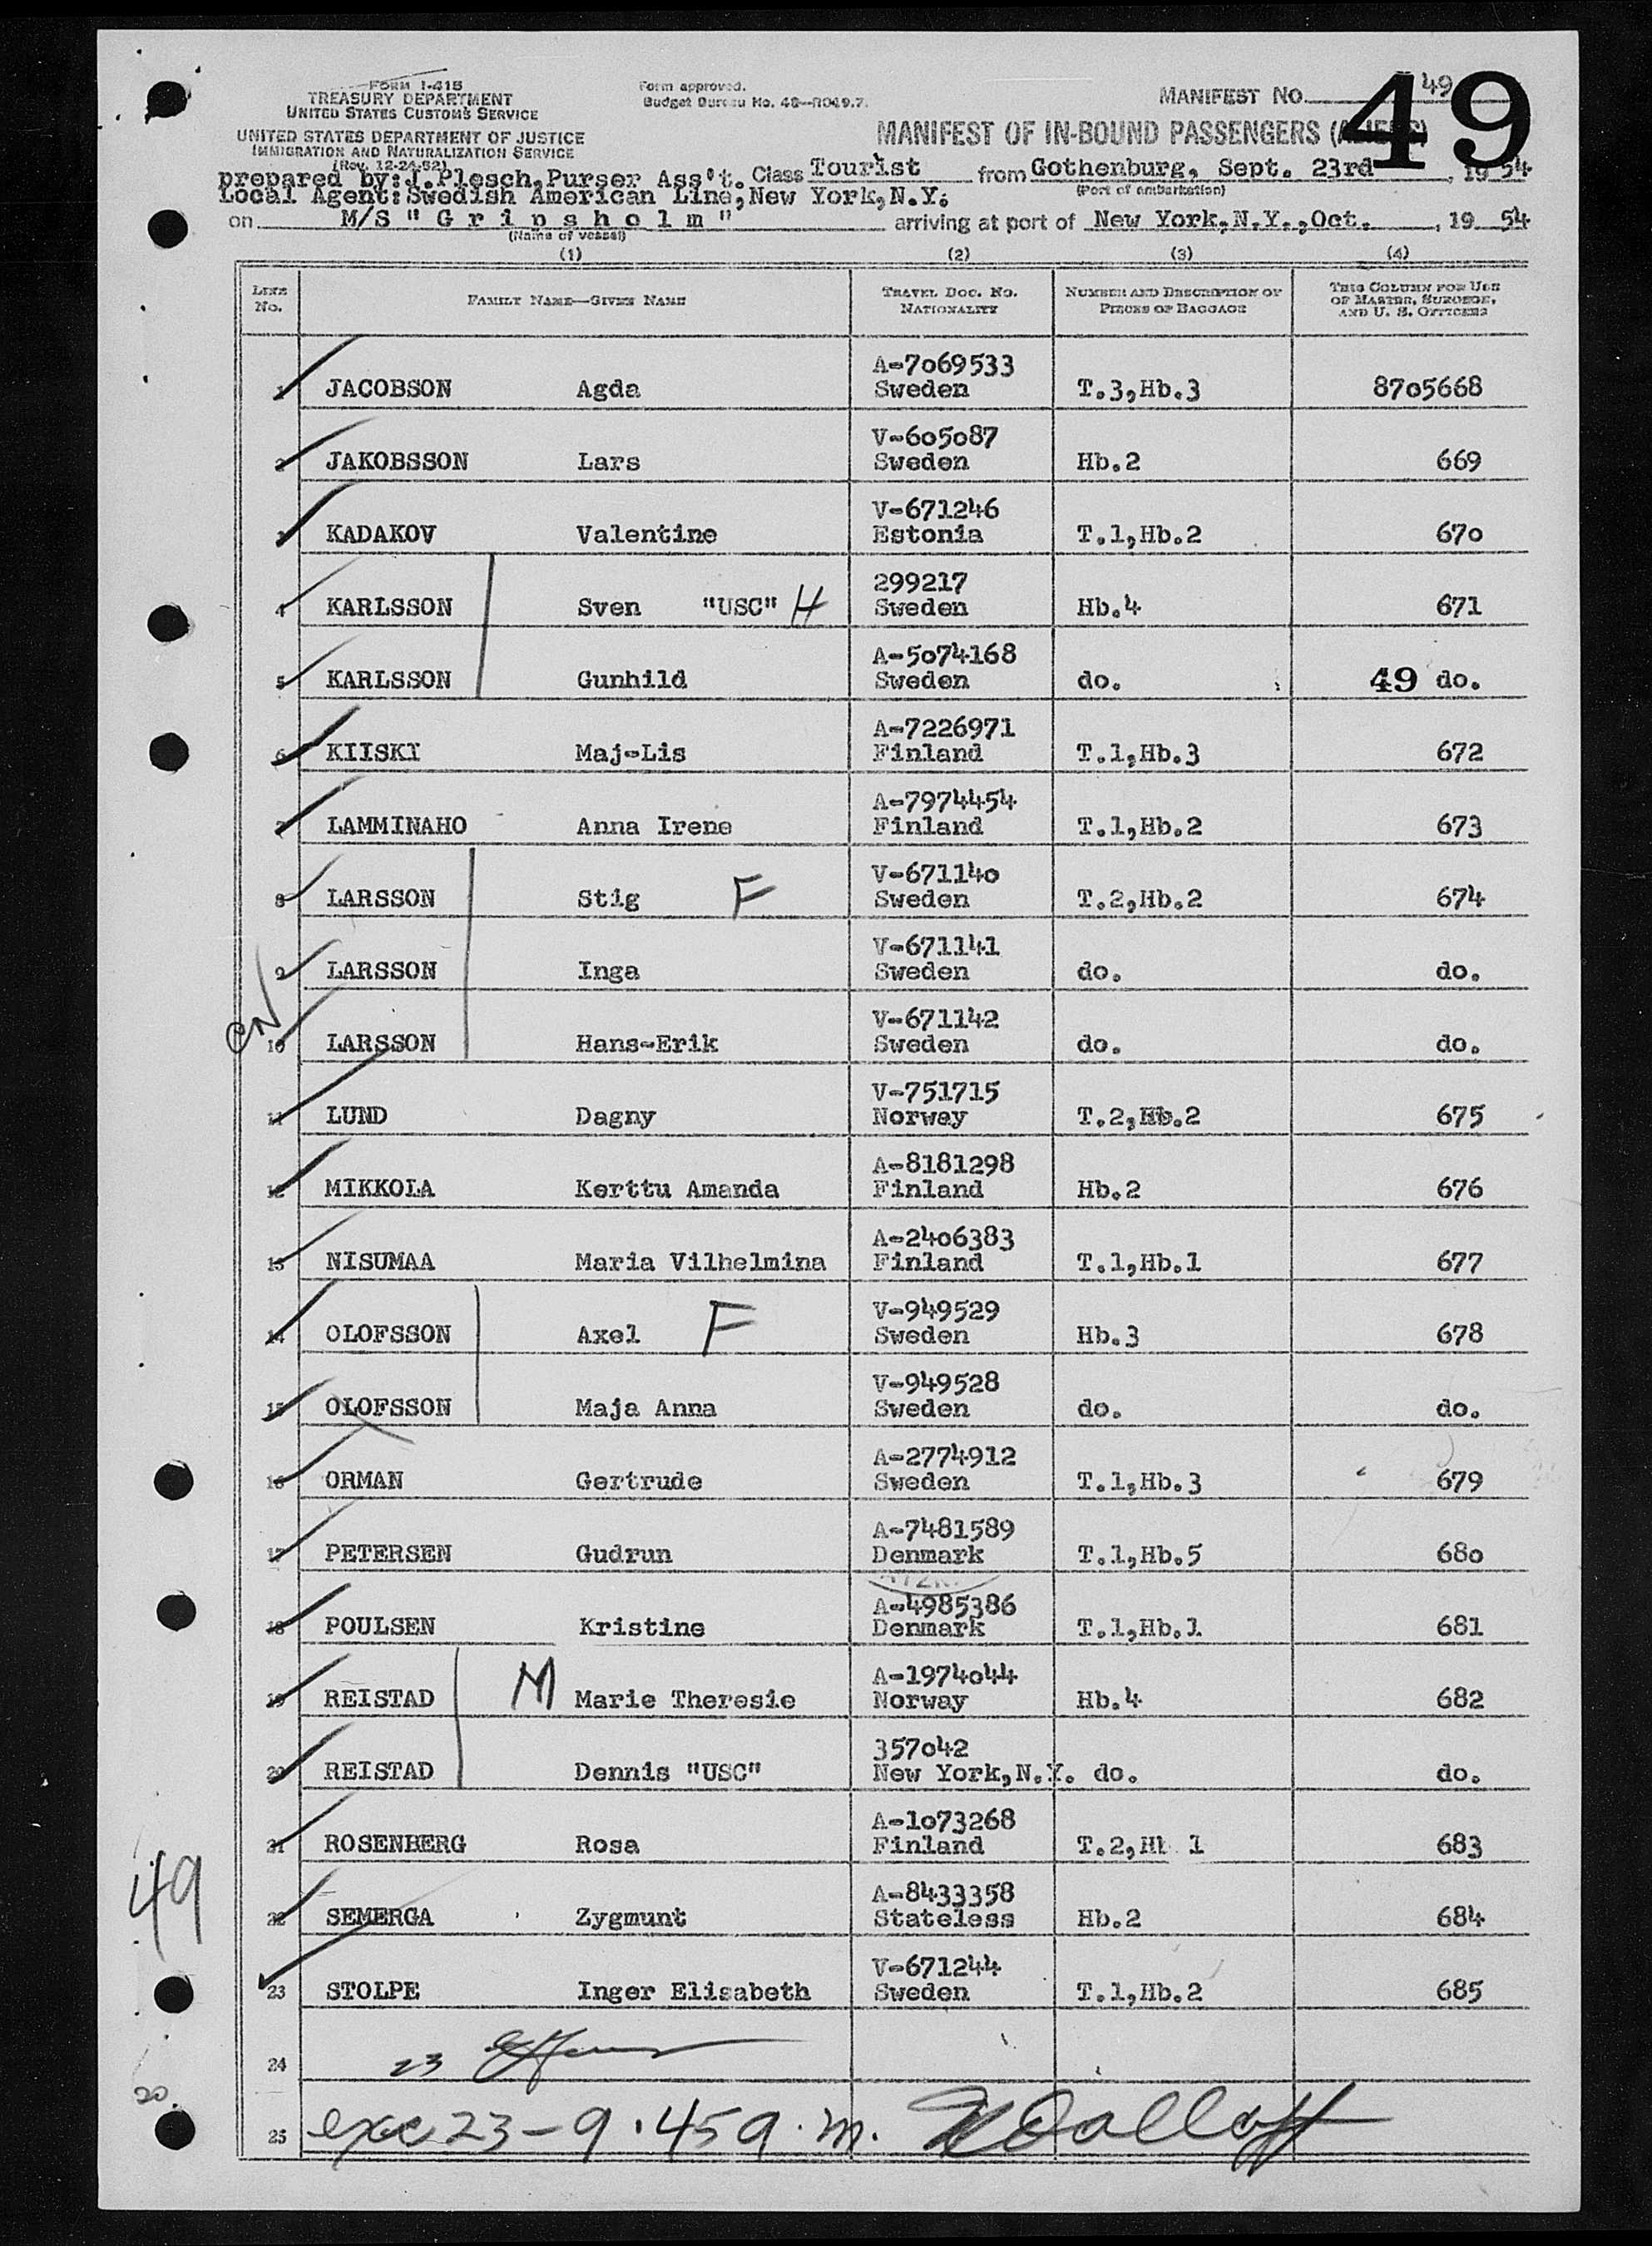 49
FORM I-415
TREASURY DEPARTMENT
UNITED STATES CUSTOMS SERVICE
UNITED STATES DEPARTMENT OF JUSTICE
IMMIGRATION AND NATURALIZATION SERVICE
(Rev. 12-24-52)
Form approved.
Budget Bureau No. 43—R049.7.
MANIFEST NO. 49
MANIFEST OF IN-BOUND PASSENGERS (ALIENS)
prepared by: J. Plesch, Purser Ass't. Class Tourist from Gothenburg, Sept. 23rd, 1954
(Port of embarkation)
Local Agent: Swedish American Line, New York, N.Y.
on M/S "G r i p s h o l m" arriving at port of New York, N.Y., Oct., 1954
(Name of vessel)
(1) (2) (3) (4)
LINE No. FAMILY NAME—GIVEN NAME TRAVEL DOC. NO. NATIONALITY NUMBER AND DESCRIPTION OF PIECES OF BAGGAGE THIS COLUMN FOR USE OF MASTER, SURGEON, AND U. S. OFFICERS
A-7069533
1 JACOBSON Agda Sweden T.3,Hb.3 8705668
V-605087
2 JAKOBSSON Lars Sweden Hb.2 669
V-671246
3 KADAKOV Valentine Estonia T.1,Hb.2 670
299217
4 KARLSSON Sven "USC" H Sweden Hb.4 671
A-5074168
5 KARLSSON Gunhild Sweden do. 49 do.
A-7226971
6 KIISKI Maj-Lis Finland T.1,Hb.3 672
A-7974454
7 LAMMINAHO Anna Irene Finland T.1,Hb.2 673
V-671140
8 LARSSON Stig F Sweden T.2,Hb.2 674
V-671141
9 LARSSON Inga Sweden do. do.
V-671142
10 LARSSON Hans-Erik Sweden do. do.
V-751715
11 LUND Dagny Norway T.2,Hb.2 675
A-8181298
12 MIKKOLA Kerttu Amanda Finland Hb.2 676
A-2406383
13 NISUMAA Maria Vilhelmina Finland T.1,Hb.1 677
V-949529
14 OLOFSSON Axel F Sweden Hb.3 678
V-949528
15 OLOFSSON Maja Anna Sweden do. do.
A-2774912
16 ORMAN Gertrude Sweden T.1,Hb.3 679
A-7481589
17 PETERSEN Gudrun Denmark T.1,Hb.5 680
A-4985386
18 POULSEN Kristine Denmark T.1,Hb.1 681
A-1974044
19 REISTAD M Marie Theresie Norway Hb.4 682
357042
20 REISTAD Dennis "USC" New York,N.Y. do. do.
A-1073268
21 ROSENBERG Rosa Finland T.2,Hb 1 683
49
A-8433358
22 SEMERGA Zygmunt Stateless Hb.2 684
V-671244
23 STOLPE Inger Elisabeth Sweden T.1,Hb.2 685
24 23
20.
25 exc 23 - 9.45 a.m.